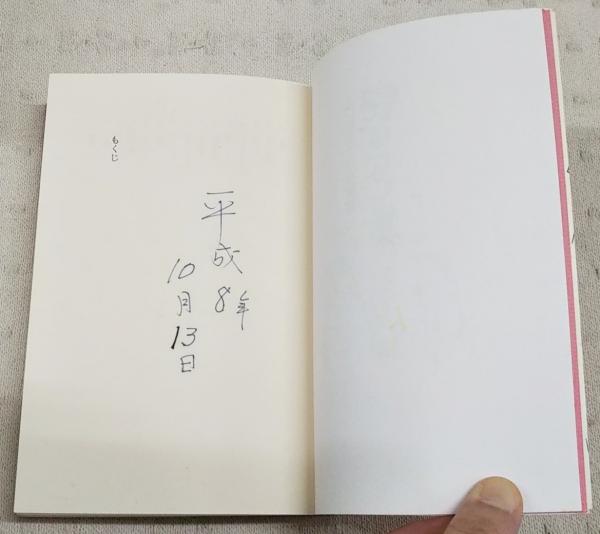 平成8年
10月13日
もくじ